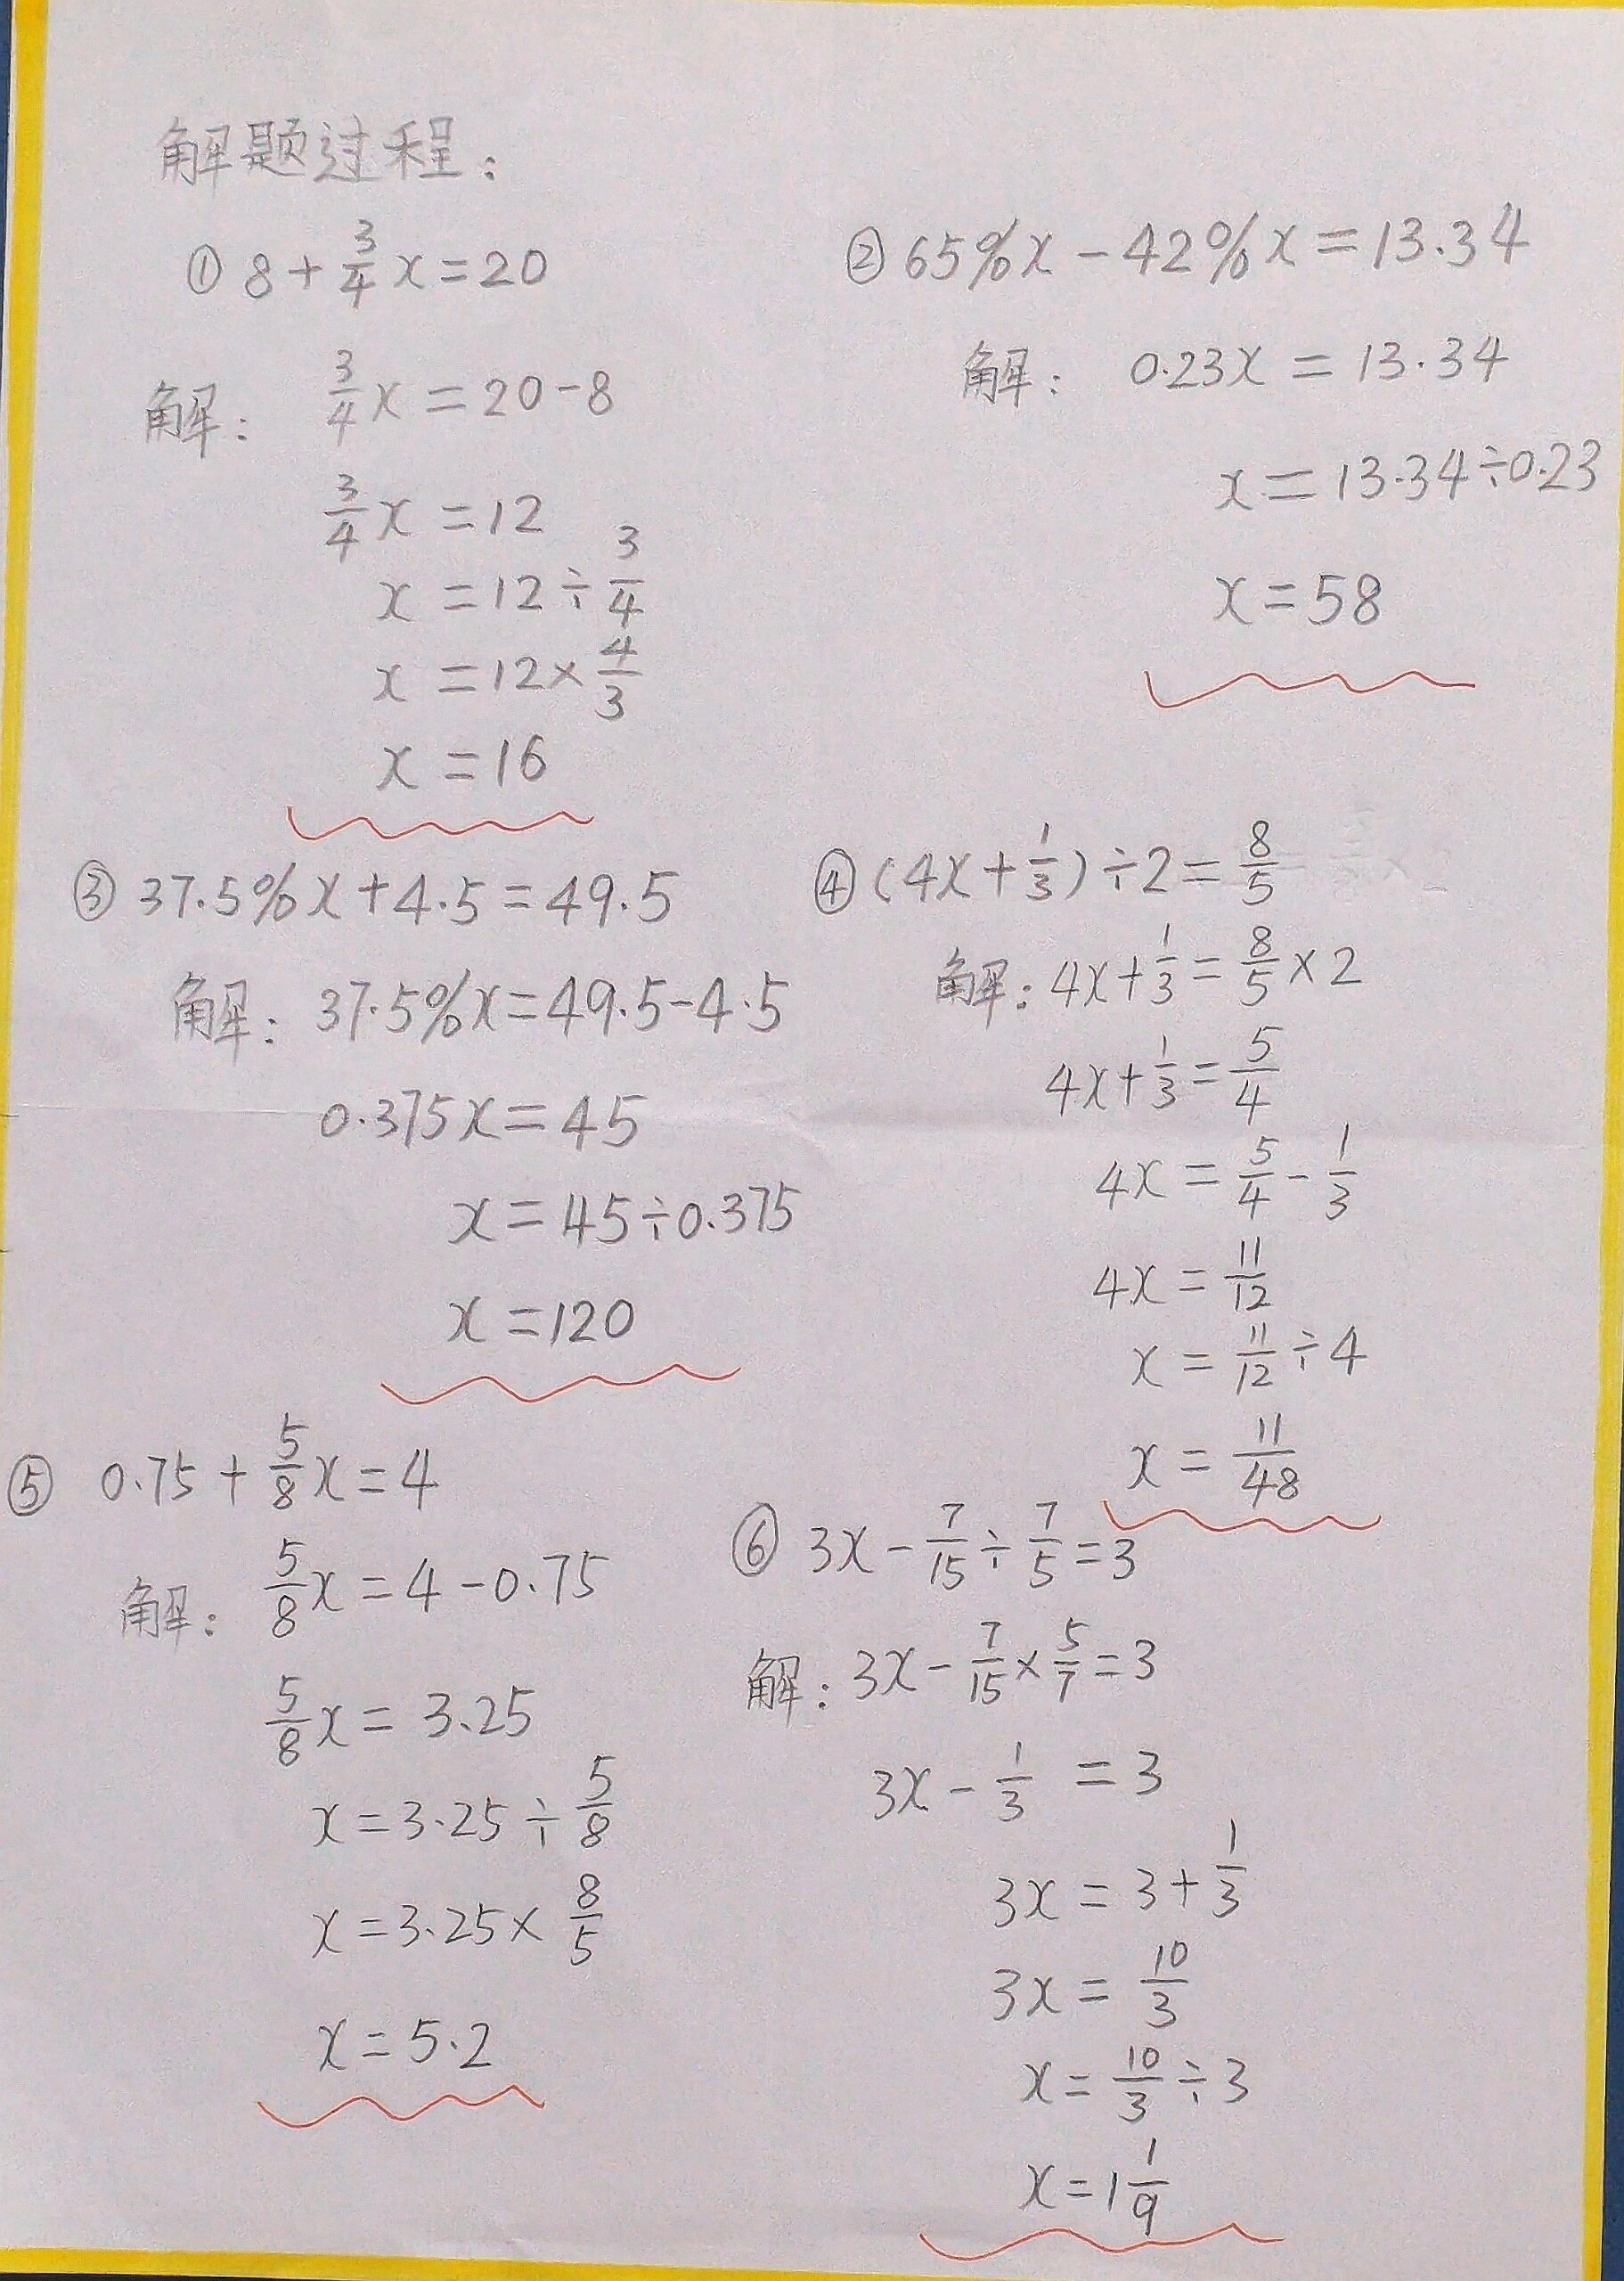 解题过程：
① 8+3/4x=20
解： 3/4x=20-8
3/4x=12
x=12÷3/4
x=12×4/3
x=16
② 65%x-42%x=13.34
解： 0.23x=13.34
x=13.34÷0.23
x=58
③ 37.5%x+4.5=49.5
解： 37.5%x=49.5-4.5
0.375x=45
x=45÷0.375
x=120
④ (4x+1/3)÷2=8/5
解：4x+1/3=8/5×2
4x+1/3=5/4
4x=5/4-1/3
4x=11/12
x=11/12÷4
x=11/48
⑤ 0.75+5/8x=4
解： 5/8x=4-0.75
5/8x=3.25
x=3.25÷5/8
x=3.25×8/5
x=5.2
⑥ 3x-7/15÷7/5=3
解：3x-7/15×5/7=3
3x-1/3=3
3x=3+1/3
3x=10/3
x=10/3÷3
x=1 1/9